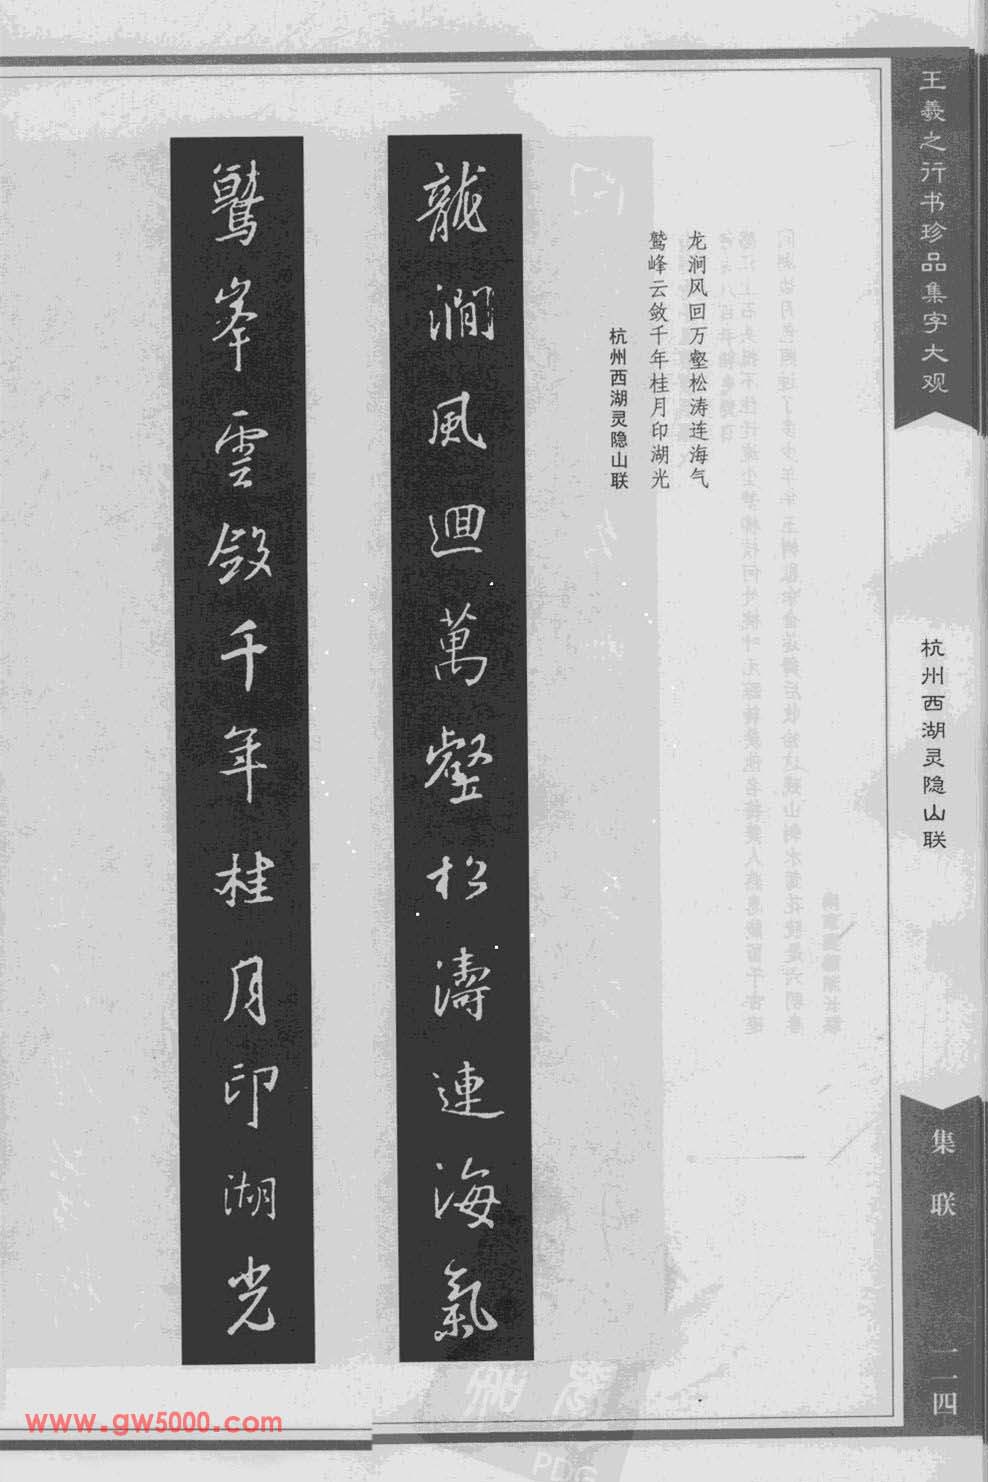 王羲之行书珍品集字大观
杭州西湖灵隐山联
集联
一二四
龙涧风回万壑松涛连海气
鹫峰云敛千年桂月印湖光
杭州西湖灵隐山联
龍澗風迴萬壑松濤連海氣
鷲峯雲斂千年桂月印湖光
www.gw5000.com
PDG